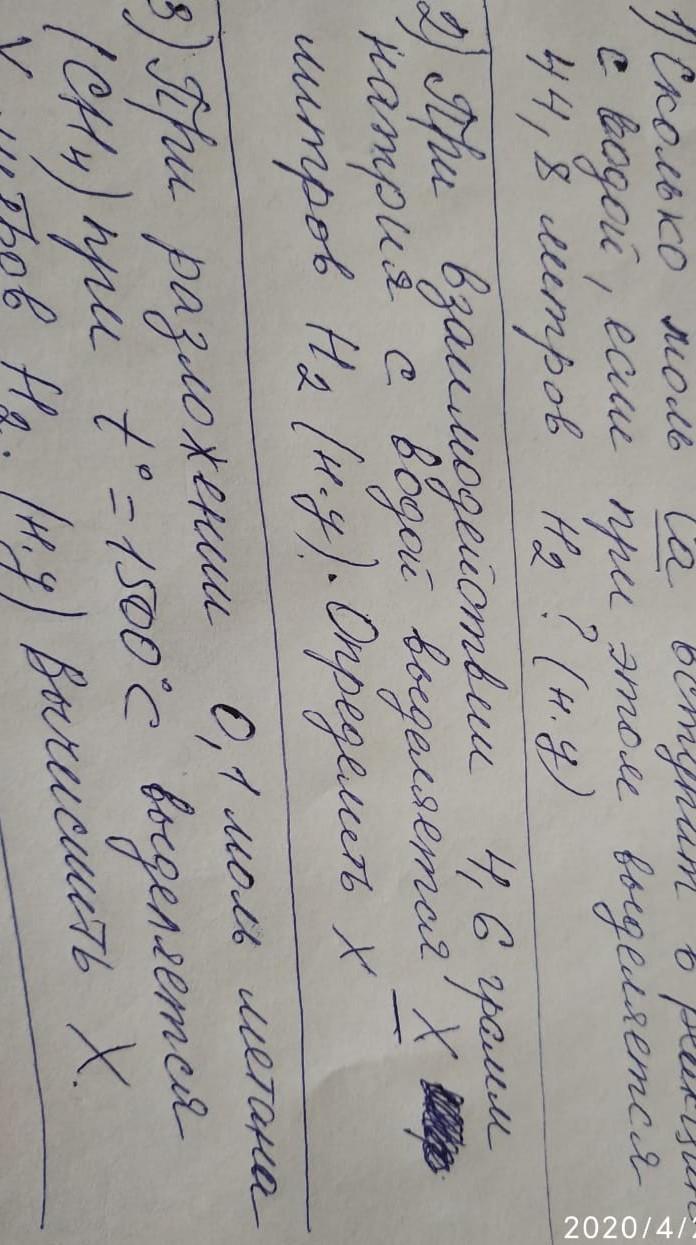 1) Сколько моль Ca вступит в
с водой, если при этом выделяется
44,8 литров H2 ? (н.у)
2) При взаимодействии 4,6 грамм
натрия с водой выделяется X
литров H2 (н.у). Определить X
3) При разложении 0,1 моль метана
(CH4) при t°=1500°C выделяется
X литров H2. (н.у) Вычислить X.
2020/4/